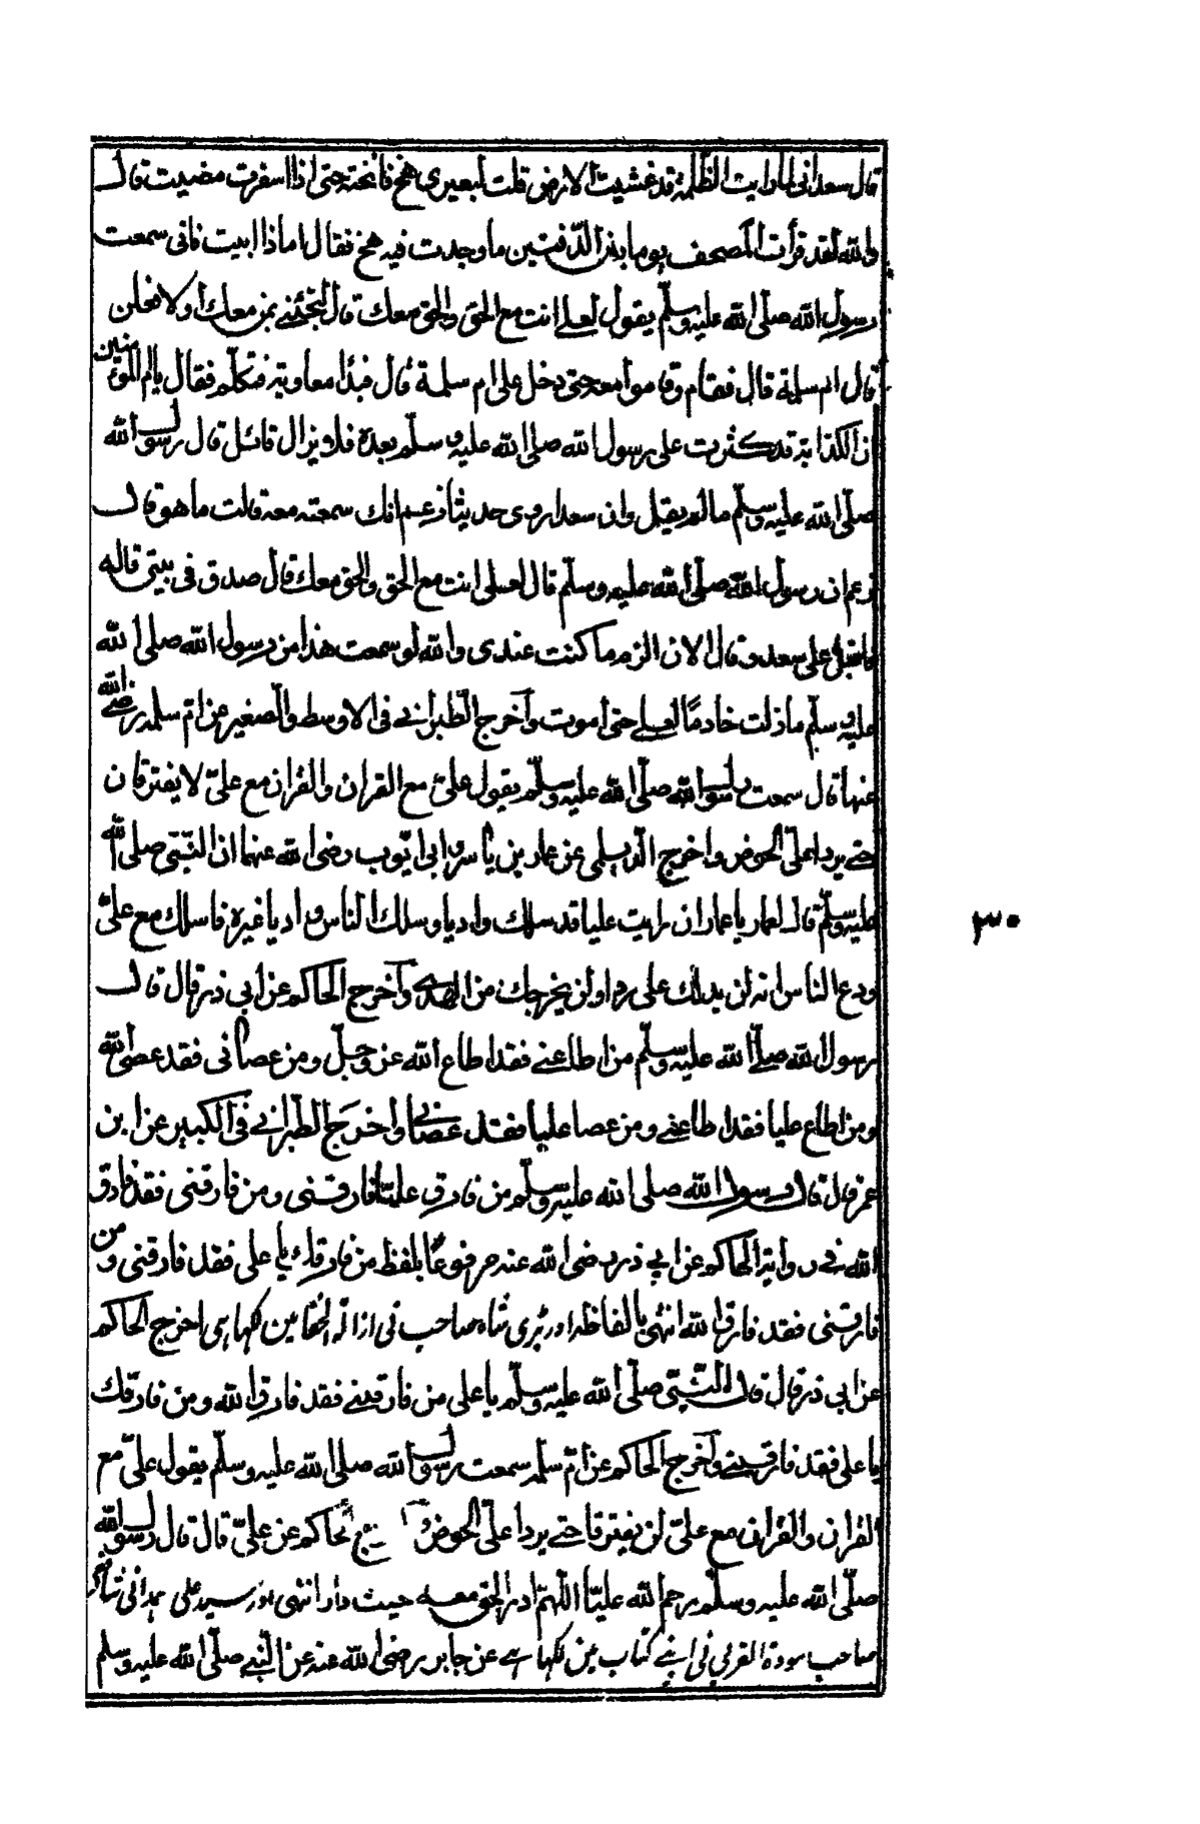 قال سعد انى لما رايت الظلمة قد غشيت الارض قلت لبعيرى هخ فانخته حتى اذا اسفرت مضيت قال
والله لقد قرأت المصحف يوما بين الدّفتين ما وجدت فيه هخ فقال اما ذا ابيت فانى سمعت
رسول الله صلّى الله عليه وسلّم يقول لعلے انت مع الحق والحق معك قال لتجئنے بمن معك او لافعلن
قال ام سلمة قال فقام وقاموا معه حتى دخل على ام سلمة قال فبدا معاوية فتكلّم فقال يا ام المؤمنين
ان الكذابة قد كثرت على رسول الله صلى الله عليه وسلّم بعده فلا يزال قائل قال رسول الله
صلّى الله عليه وسلّم ما لم يقل وان سعدا روى حديثا زعم انك سمعته معه قالت ما هو قال
زعم ان رسول الله صلّى الله عليه وسلّم قال لعلى انت مع الحق والحق معك قال صدق فى بيتى قاله
فاقبل على سعد وقال الان الزم ما كنت عندى والله لو سمعت هذا من رسول الله صلى الله
عليه وسلّم ما زلت خادمًا لعلے حتى اموت وآخرج الطبرانے فى الاوسط والصغير عن امّ سلمه رضے الله
عنها قال سمعت رسول الله صلّى الله عليه وسلّم يقول علىّ مع القران والقران مع علىّ لا يفترقان
حتے يردا علىّ الحوض واخرج الديلمى عن عمار بن ياسر وابى ايّوب رضى الله عنهما ان النّبّى صلى الله
عليه وسلّم قال لعمار يا عمار ان رايت عليا قد سلك واديا وسلك الناس واديا غيره فاسلك مع علىّ
ودع الناس انه لن يدلك على ردا ولن يخرجك من الهدے وآخرج الحاكم عن ابى ذر قال قال
رسول الله صلّے الله عليه وسلّم من اطاعنے فقد اطاع الله عز وجلّ ومن عصانى فقد عصى الله
ومن اطاع عليا فقد اطاعنے ومن عصا عليا فقد عصانے واخرج الطبرانے فى الكبير عن ابن
عمر قال قال رسول الله صلى الله عليه وسلّم من فارق عليّا فارقنى ومن فارقنى فقد فارق
الله فے رواية الحاكم عن ابى ذر رضى الله عنه مرفوعًا بلفظ من فارقك يا على فقد فارقنى ومن
فارقنى فقد فارق الله انتهى بالفاظه اور بڑى شاه صاحب نى ازالة الخفا مين لكها ہى اخرج الحاكم
عن ابى ذر قال قال النّبّى صلّى الله عليه وسلّم يا على من فارقنے فقد فارق الله ومن فارقك
يا على فقد فارقنے وآخرج الحاكم عن امّ سلمه سمعت رسول الله صلى الله عليه وسلّم يقول علىّ مع
القران والقران مع علىّ لن يفترقا حتے يردا علىّ الحوض الحاكم عن علىّ قال قال رسول الله
صلّى الله عليه وسلّم رحم الله عليّا اللّهمّ ادر الحق معه حيث دار انتهى اور سيد على همدانى
صاحب مودة القربى نى اپنے كتاب مين لكها ہے عن جابر رضى الله عنه عن النّبے صلّى الله عليه وسلم
٣٠